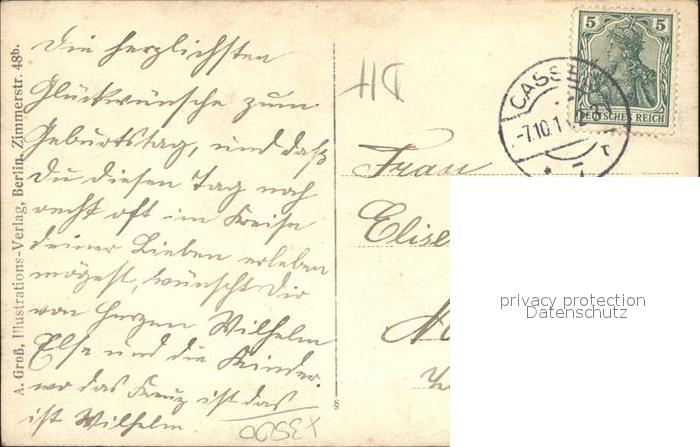 Die herzlichsten
Glückwünsche zum
Geburtstag, und daß
Du diesen Tag noch
recht oft im Kreise
deiner Lieben erleben
mögest, wünscht Dir
von Herzen Wilhelm
Else und die Kinder.
wo das Kreuz ist das
ist Wilhelm.
A. Groß, Illustrations-Verlag, Berlin, Zimmerstr. 48b.
DH
5 5
DEUTSCHES REICH
CASSEL
-7.10.1
r
Frau
x3990
privacy protection
Datenschutz